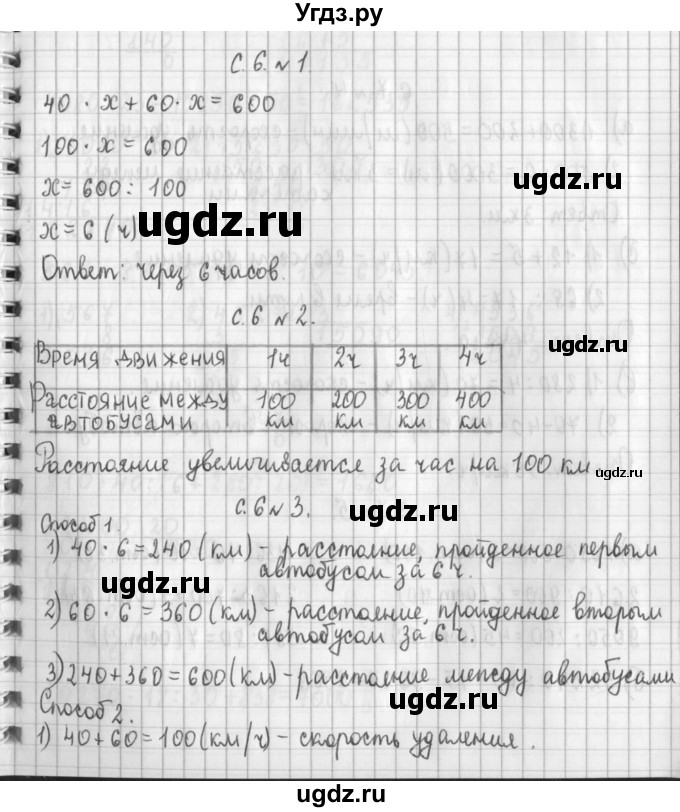 Угдз.ру
с. 6. № 1.
40 · x + 60 · x = 600
100 · x = 600
x = 600 : 100
ugdz.ru
x = 6 (ч)
ugdz.ru
Ответ: через 6 часов.
ugdz.ru
с. 6 № 2.
ugdz.ru
Время движения 1ч 2ч 3ч 4ч
Расстояние между автобусами 100 км 200 км 300 км 400 км
ugdz.ru
Расстояние увеличивается за час на 100 км.
ugdz.ru
с. 6 № 3.
ugdz.ru
Способ 1.
1) 40 · 6 = 240 (км) - расстояние, пройденное первым
автобусом за 6 ч.
ugdz.ru
2) 60 · 6 = 360 (км) - расстояние, пройденное вторым
автобусом за 6 ч.
ugdz.ru
3) 240 + 360 = 600 (км) - расстояние между автобусами
ugdz.ru
Способ 2.
1) 40 + 60 = 100 (км/ч) - скорость удаления.
ugdz.ru
ugdz.ru